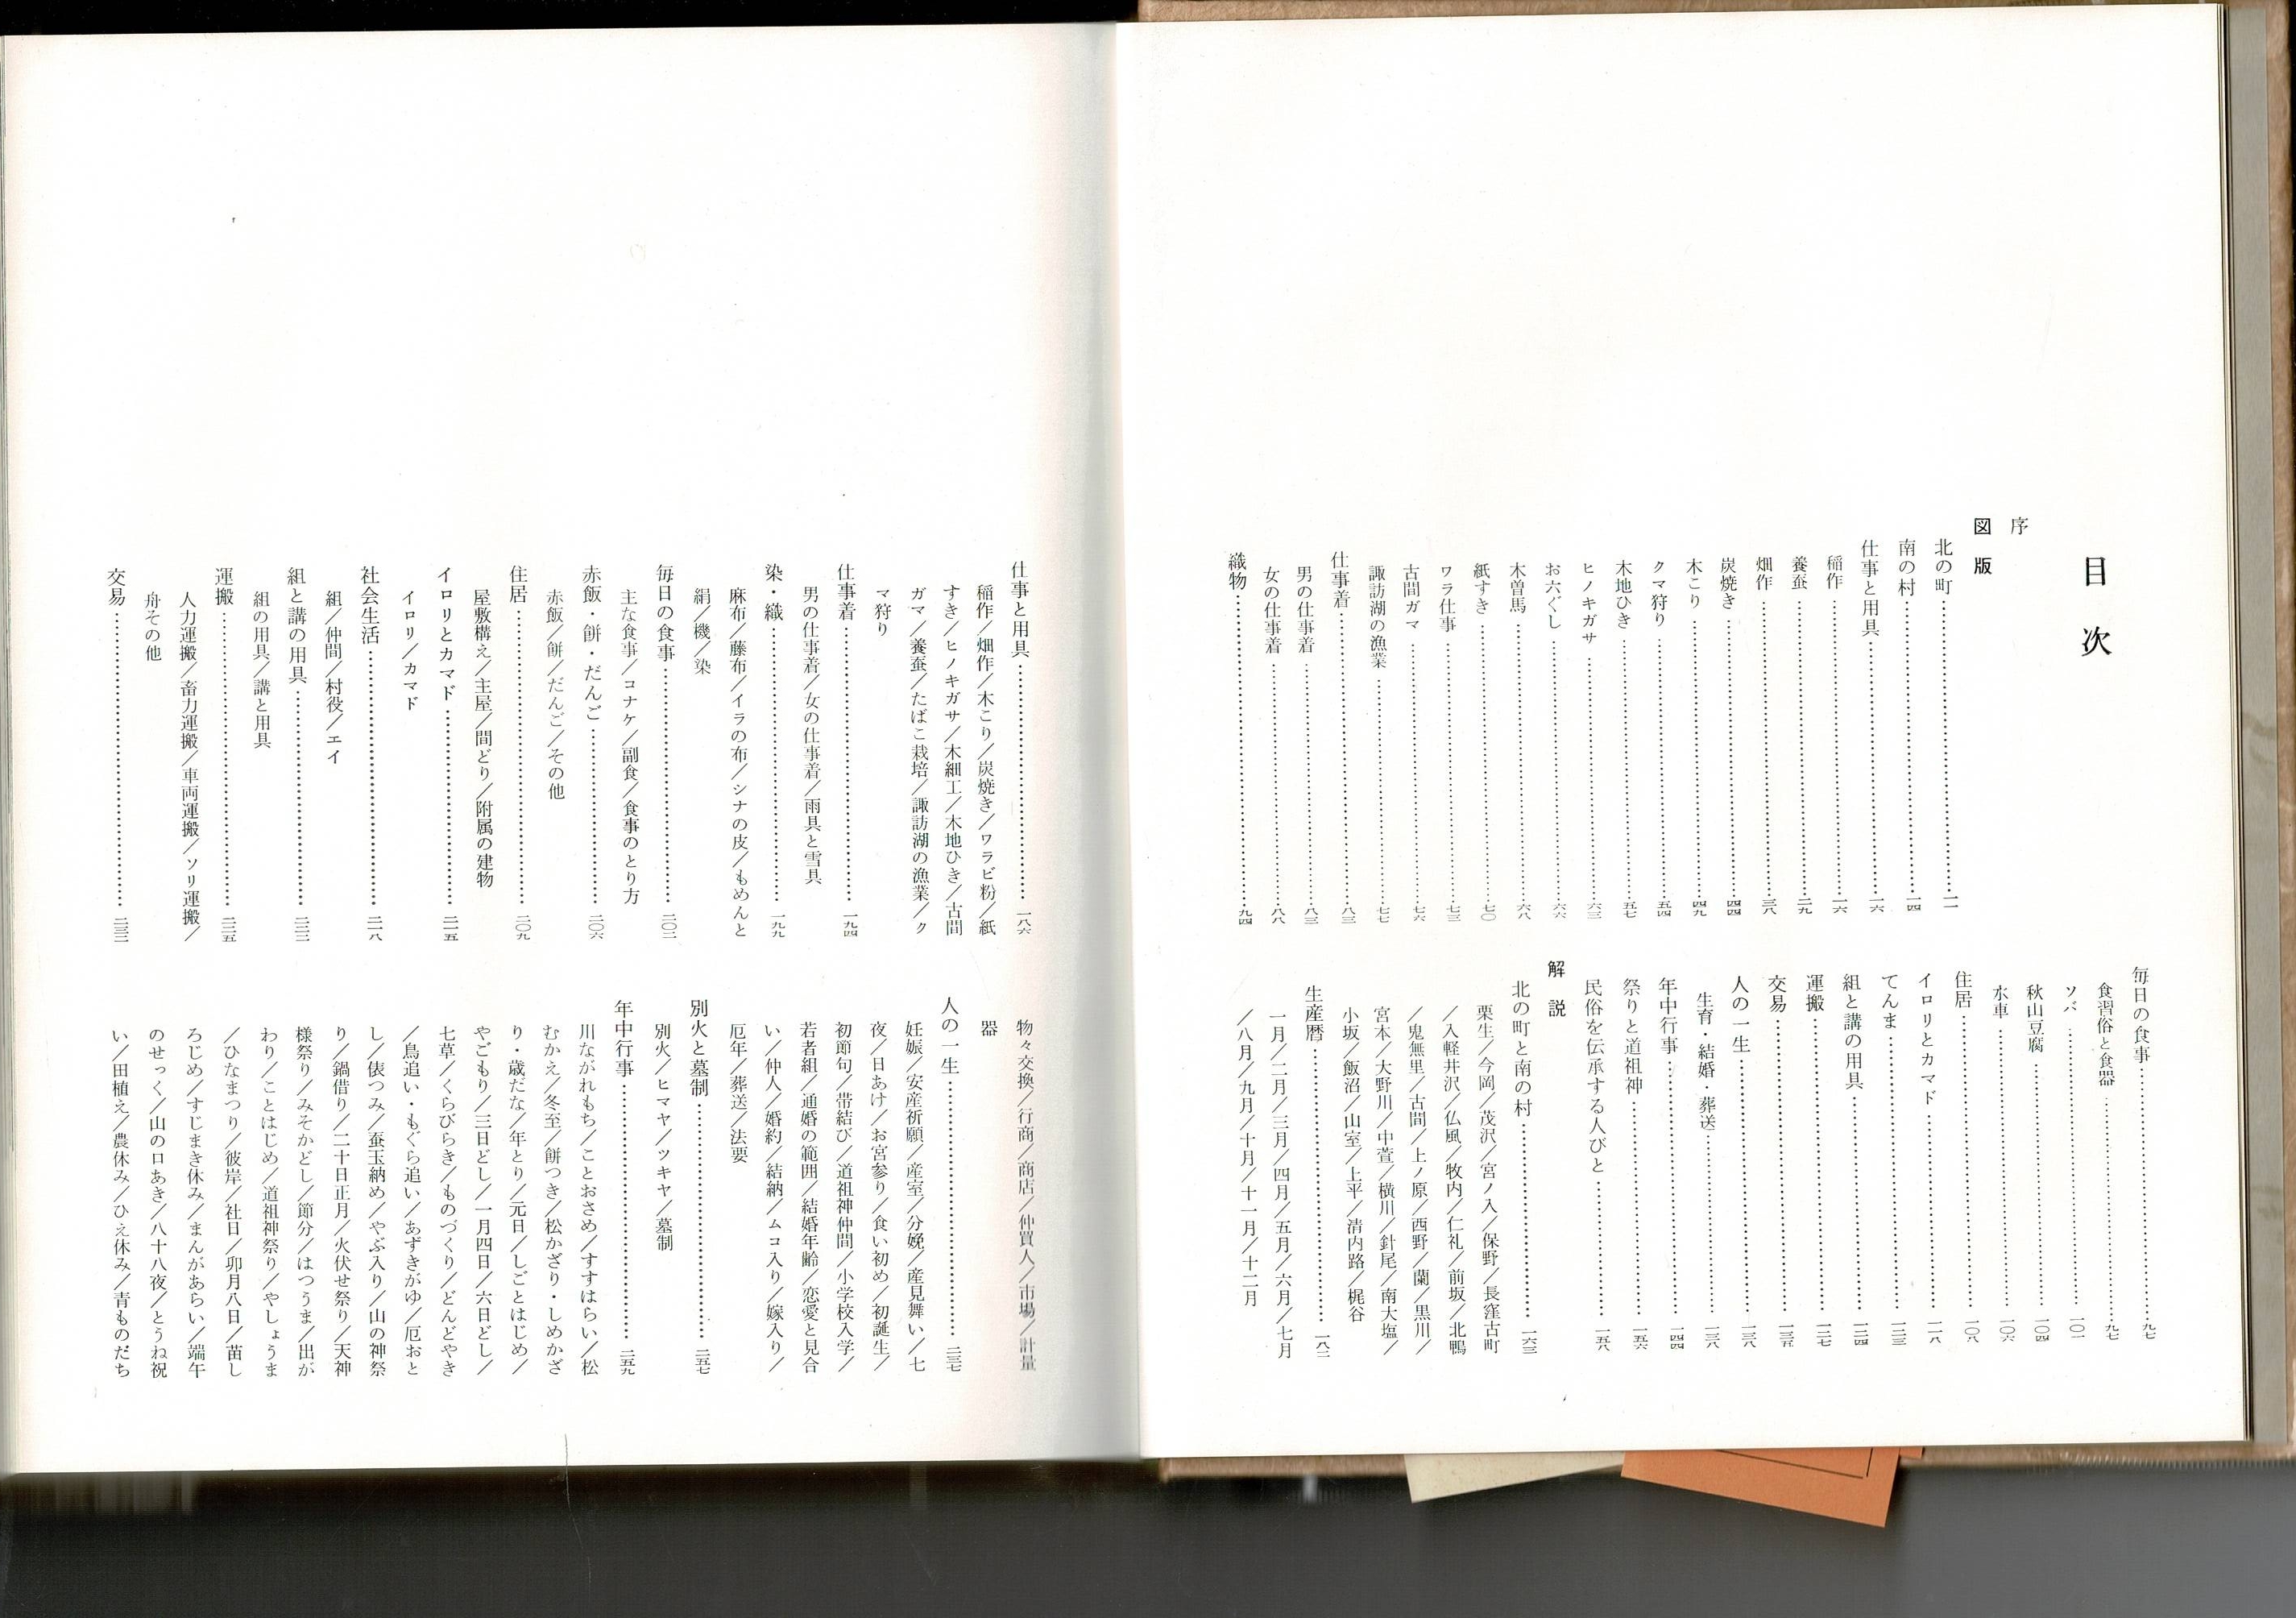 目次
序
図版
北の町……………一一
南の村……………一四
仕事と用具……………一六
稲作……………一六
養蚕……………二九
畑作……………三八
炭焼き……………四四
木こり……………四九
クマ狩り……………五四
木地ひき……………五七
ヒノキガサ……………六三
お六ぐし……………六六
木曽馬……………六八
紙すき……………七〇
ワラ仕事……………七三
古間ガマ……………七六
諏訪湖の漁業……………七七
仕事着……………八三
男の仕事着……………八三
女の仕事着……………八八
織物……………九四
毎日の食事……………九七
食習俗と食器……………九七
ソバ……………一〇一
秋山豆腐……………一〇四
水車……………一〇六
住居……………一〇八
イロリとカマド……………一一八
てんま……………一二三
組と講の用具……………一二四
運搬……………一二七
交易……………一三五
人の一生……………一三八
生育・結婚・葬送……………一三八
年中行事……………一四四
祭りと道祖神……………一五六
民俗を伝承する人びと……………一五八
解説
北の町と南の村……………一六三
栗生／今岡／茂沢／宮ノ入／保野／長窪古町
／入軽井沢／仏風／牧内／仁礼／前坂／北鴨
／鬼無里／古間／上ノ原／西野／蘭／黒川／
宮本／大野川／中萱／横川／針尾／南大塩／
小坂／飯沼／山室／上平／清内路／梶谷
生産暦……………一八二
一月／二月／三月／四月／五月／六月／七月
／八月／九月／十月／十一月／十二月
仕事と用具……………一八六
稲作／畑作／木こり／炭焼き／ワラビ粉／紙
すき／ヒノキガサ／木細工／木地ひき／古間
ガマ／養蚕／たばこ栽培／諏訪湖の漁業／ク
マ狩り
仕事着……………一九四
男の仕事着／女の仕事着／雨具と雪具
染・織……………一九九
麻布／藤布／イラの布／シナの皮／もめんと
絹／機／染
毎日の食事……………二〇二
主な食事／コナケ／副食／食事のとり方
赤飯・餅・だんご……………二〇六
赤飯／餅／だんご／その他
住居……………二〇九
屋敷構え／主屋／間どり／附属の建物
イロリとカマド……………二一五
イロリ／カマド
社会生活……………二一八
組／仲間／村役／エイ
組と講の用具……………二二二
組の用具／講と用具
運搬……………二二五
人力運搬／畜力運搬／車両運搬／ソリ運搬／
舟その他
交易……………二三二
物々交換／行商／商店／仲買人／市場／計量
器
人の一生……………二三七
妊娠／安産祈願／産室／分娩／産見舞い／七
夜／日あけ／お宮参り／食い初め／初誕生／
初節句／帯結び／道祖神仲間／小学校入学／
若者組／通婚の範囲／結婚年齢／恋愛と見合
い／仲人／婚約／結納／ムコ入り／嫁入り／
厄年／葬送／法要
別火と墓制……………二五七
別火／ヒマヤ／ツキヤ／墓制
年中行事……………二五九
川ながれもち／ことおさめ／すすはらい／松
むかえ／冬至／餅つき／松かざり・しめかざ
り・歳だな／年とり／元日／しごとはじめ／
やごもり／三日どし／一月四日／六日どし／
七草／くらびらき／ものづくり／どんどやき
／鳥追い・もぐら追い／あずきがゆ／厄おと
し／俵つみ／蚕玉納め／やぶ入り／山の神祭
り／鍋借り／二十日正月／火伏せ祭り／天神
様祭り／みそかどし／節分／はつうま／出が
わり／ことはじめ／道祖神祭り／やしょうま
／ひなまつり／彼岸／社日／卯月八日／苗し
ろじめ／すじまき休み／まんがあらい／端午
のせっく／山の口あき／八十八夜／とうね祝
い／田植え／農休み／ひえ休み／青ものだち